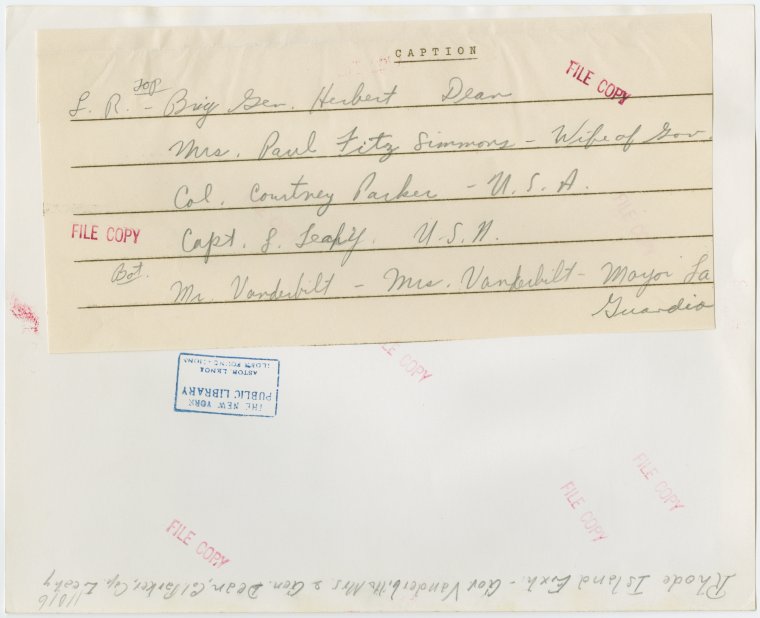 CAPTION
FILE COPY
Top
L. R. - Brig Gen. Herbert Dean
Mrs. Paul Fitz Simmons - Wife of Gov.
Col. Courtney Parker - U.S.A.
FILE COPY
FILE COPY
Capt. L. Leahy. U.S.N.
Bot.
Mr. Vanderbilt - Mrs. Vanderbilt - Mayor La
Guardia
FILE COPY
THE NEW YORK
PUBLIC LIBRARY
ASTOR LENOX
TILDEN FOUNDATIONS
FILE COPY
FILE COPY
FILE COPY
Rhode Island Exh. - Gov Vanderbilt, Mrs & Gen. Dean, Col Parker, Cap. Leahy
11016